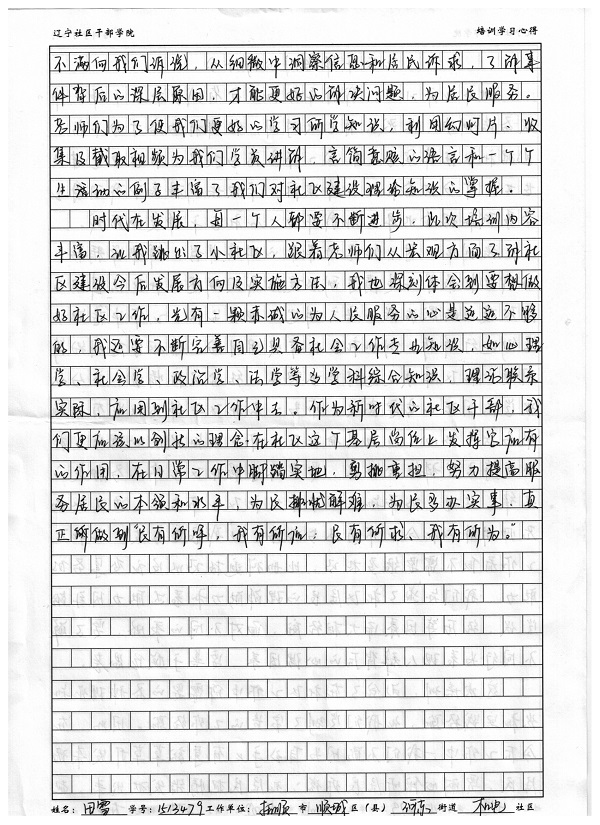 辽宁社区干部学院 培训学习心得
不满向我们诉说，从细微中洞察信息和居民诉求，了解事
件背后的深层原因，才能更好的解决问题，为居民服务。
老师们为了使我们更好的学习所学知识，利用幻灯片、收
集及截取视频为我们学员讲解，言简意赅的语言和一个个
生活动的例子丰富了我们对社区建设理论知识的掌握。
时代在发展，每一个人都要不断进步，此次培训内容
丰富，让我跳出了小社区，跟着老师们从宏观方面了解社
区建设今后发展方向及实施方法，我也深刻体会到要想做
好社区工作，光有一颗赤诚的为人民服务的心是远远不够
的，我还要不断完善自己具备社会工作专业知识，如心理
学、社会学、政治学、法学等多学科综合知识，理论联系
实际，应用到社区工作中去。作为新时代的社区干部，我
们更应该以创新的理念在社区这个基层岗位上发挥它应有
的作用，在日常工作中脚踏实地，勇挑重担，努力提高服
务居民的本领和水平，为民排忧解难，为民多办实事，真
正所做到“民有所呼，我有所应，民有所求，我有所为。”
姓名：田雪 学号：1513479 工作单位：抚顺市 顺城区（县） 河东街道 社区